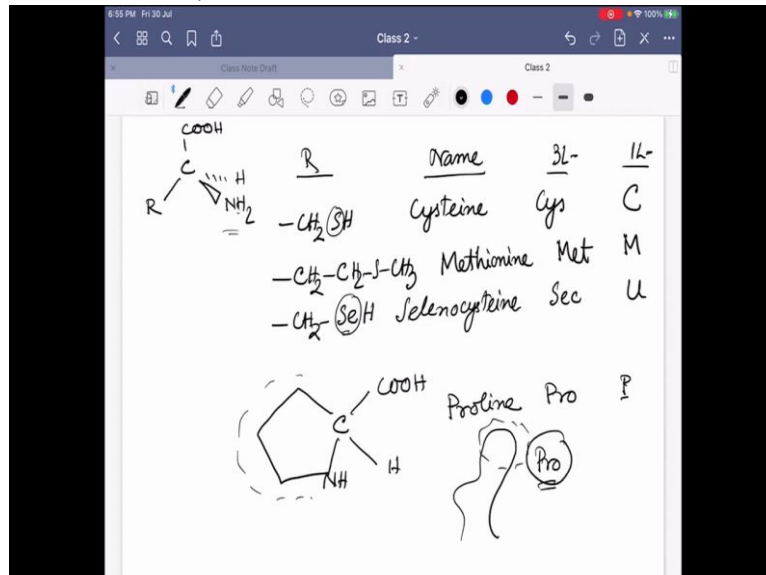 6:55 PM Fri 30 Jul
100%
Class 2
Class Note Draft
Class 2
COOH
C
H
R
NH2
R Name 3L- 1L-
-CH2SH Cysteine Cys C
-CH2-CH2-S-CH3 Methionine Met M
-CH2-SeH Selenocysteine Sec U
COOH
C
H
NH
Proline Pro P
Pro